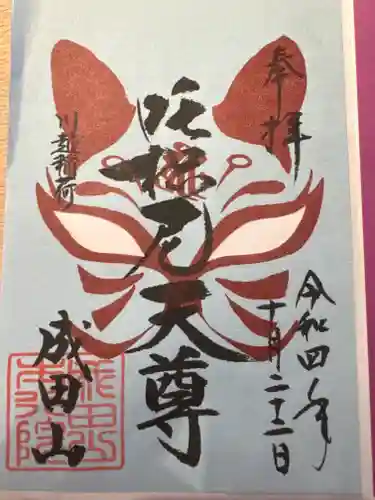 奉拝
令和四年
十月二十二日
吒枳尼天尊
川越稲荷
成田山